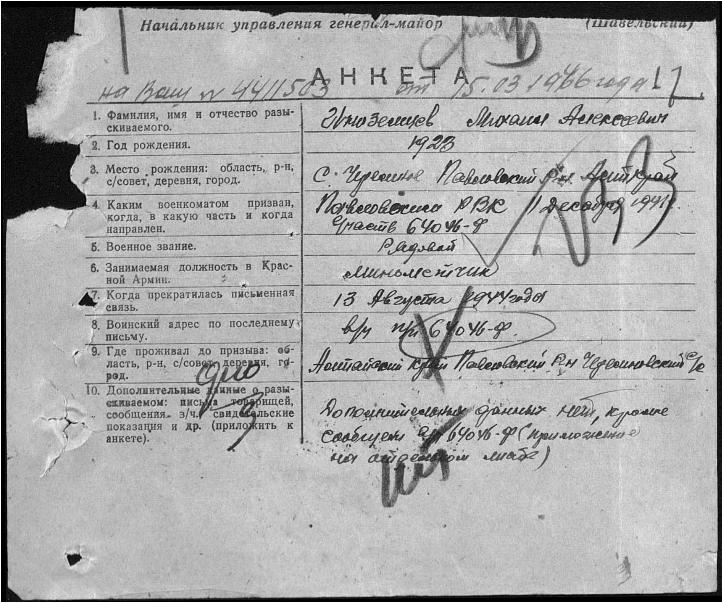 Начальник управления генерал-майор (Шавельский)
АНКЕТА
на Ваш № 4411503 от 15.03 1946 года
1. Фамилия, имя и отчество разыскиваемого. Иноземцев Михаил Алексеевич
2. Год рождения. 1923
3. Место рождения: область, р-н, с/совет, деревня, город. с. Чудиное Павловский р-н Алт край
4. Каким военкоматом призван, когда, в какую часть и когда направлен. Павловским РВК 11 декабря 1941г.
часть 64046-ф
5. Военное звание. Рядовой
6. Занимаемая должность в Красной Армии. Минометчик
7. Когда прекратилась письменная связь. 13 Августа 1944 года
8. Воинский адрес по последнему письму. в/ч п/п 64046-ф.
9. Где проживал до призыва: область, р-н, с/совет, деревня, город. Алтайский край Павловский р-н с/с
10. Дополнительные данные о разыскиваемом: письма товарищей, сообщения в/ч, свидетельские показания и др. (приложить к анкете).
Дополнительных данных нет, кроме
сообщен в/ч 64046-ф (приложение
на отдельном листе)